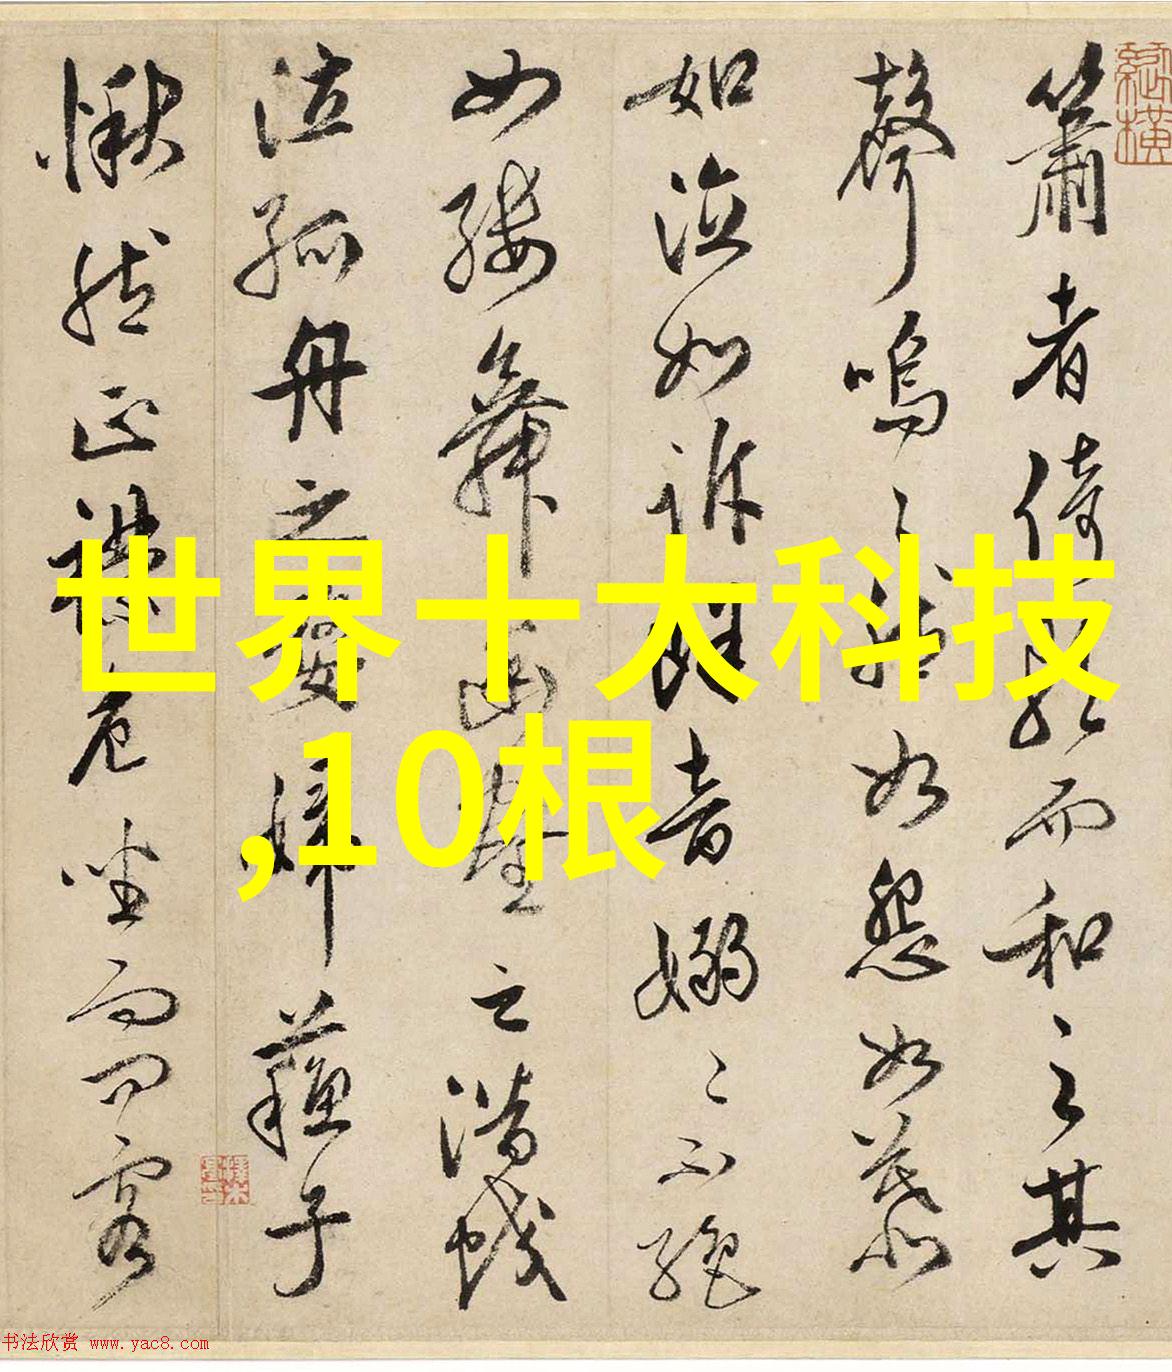 簫者倚歌而和之其
聲嗚〻然如怨如慕
如泣如訴餘音嫋〻不絕
如縷舞幽壑之潛蛟
泣孤舟之嫠婦蘇子
愀然正襟危坐而問客
世界十大科技
,10根
书法欣赏 www.yac8.com